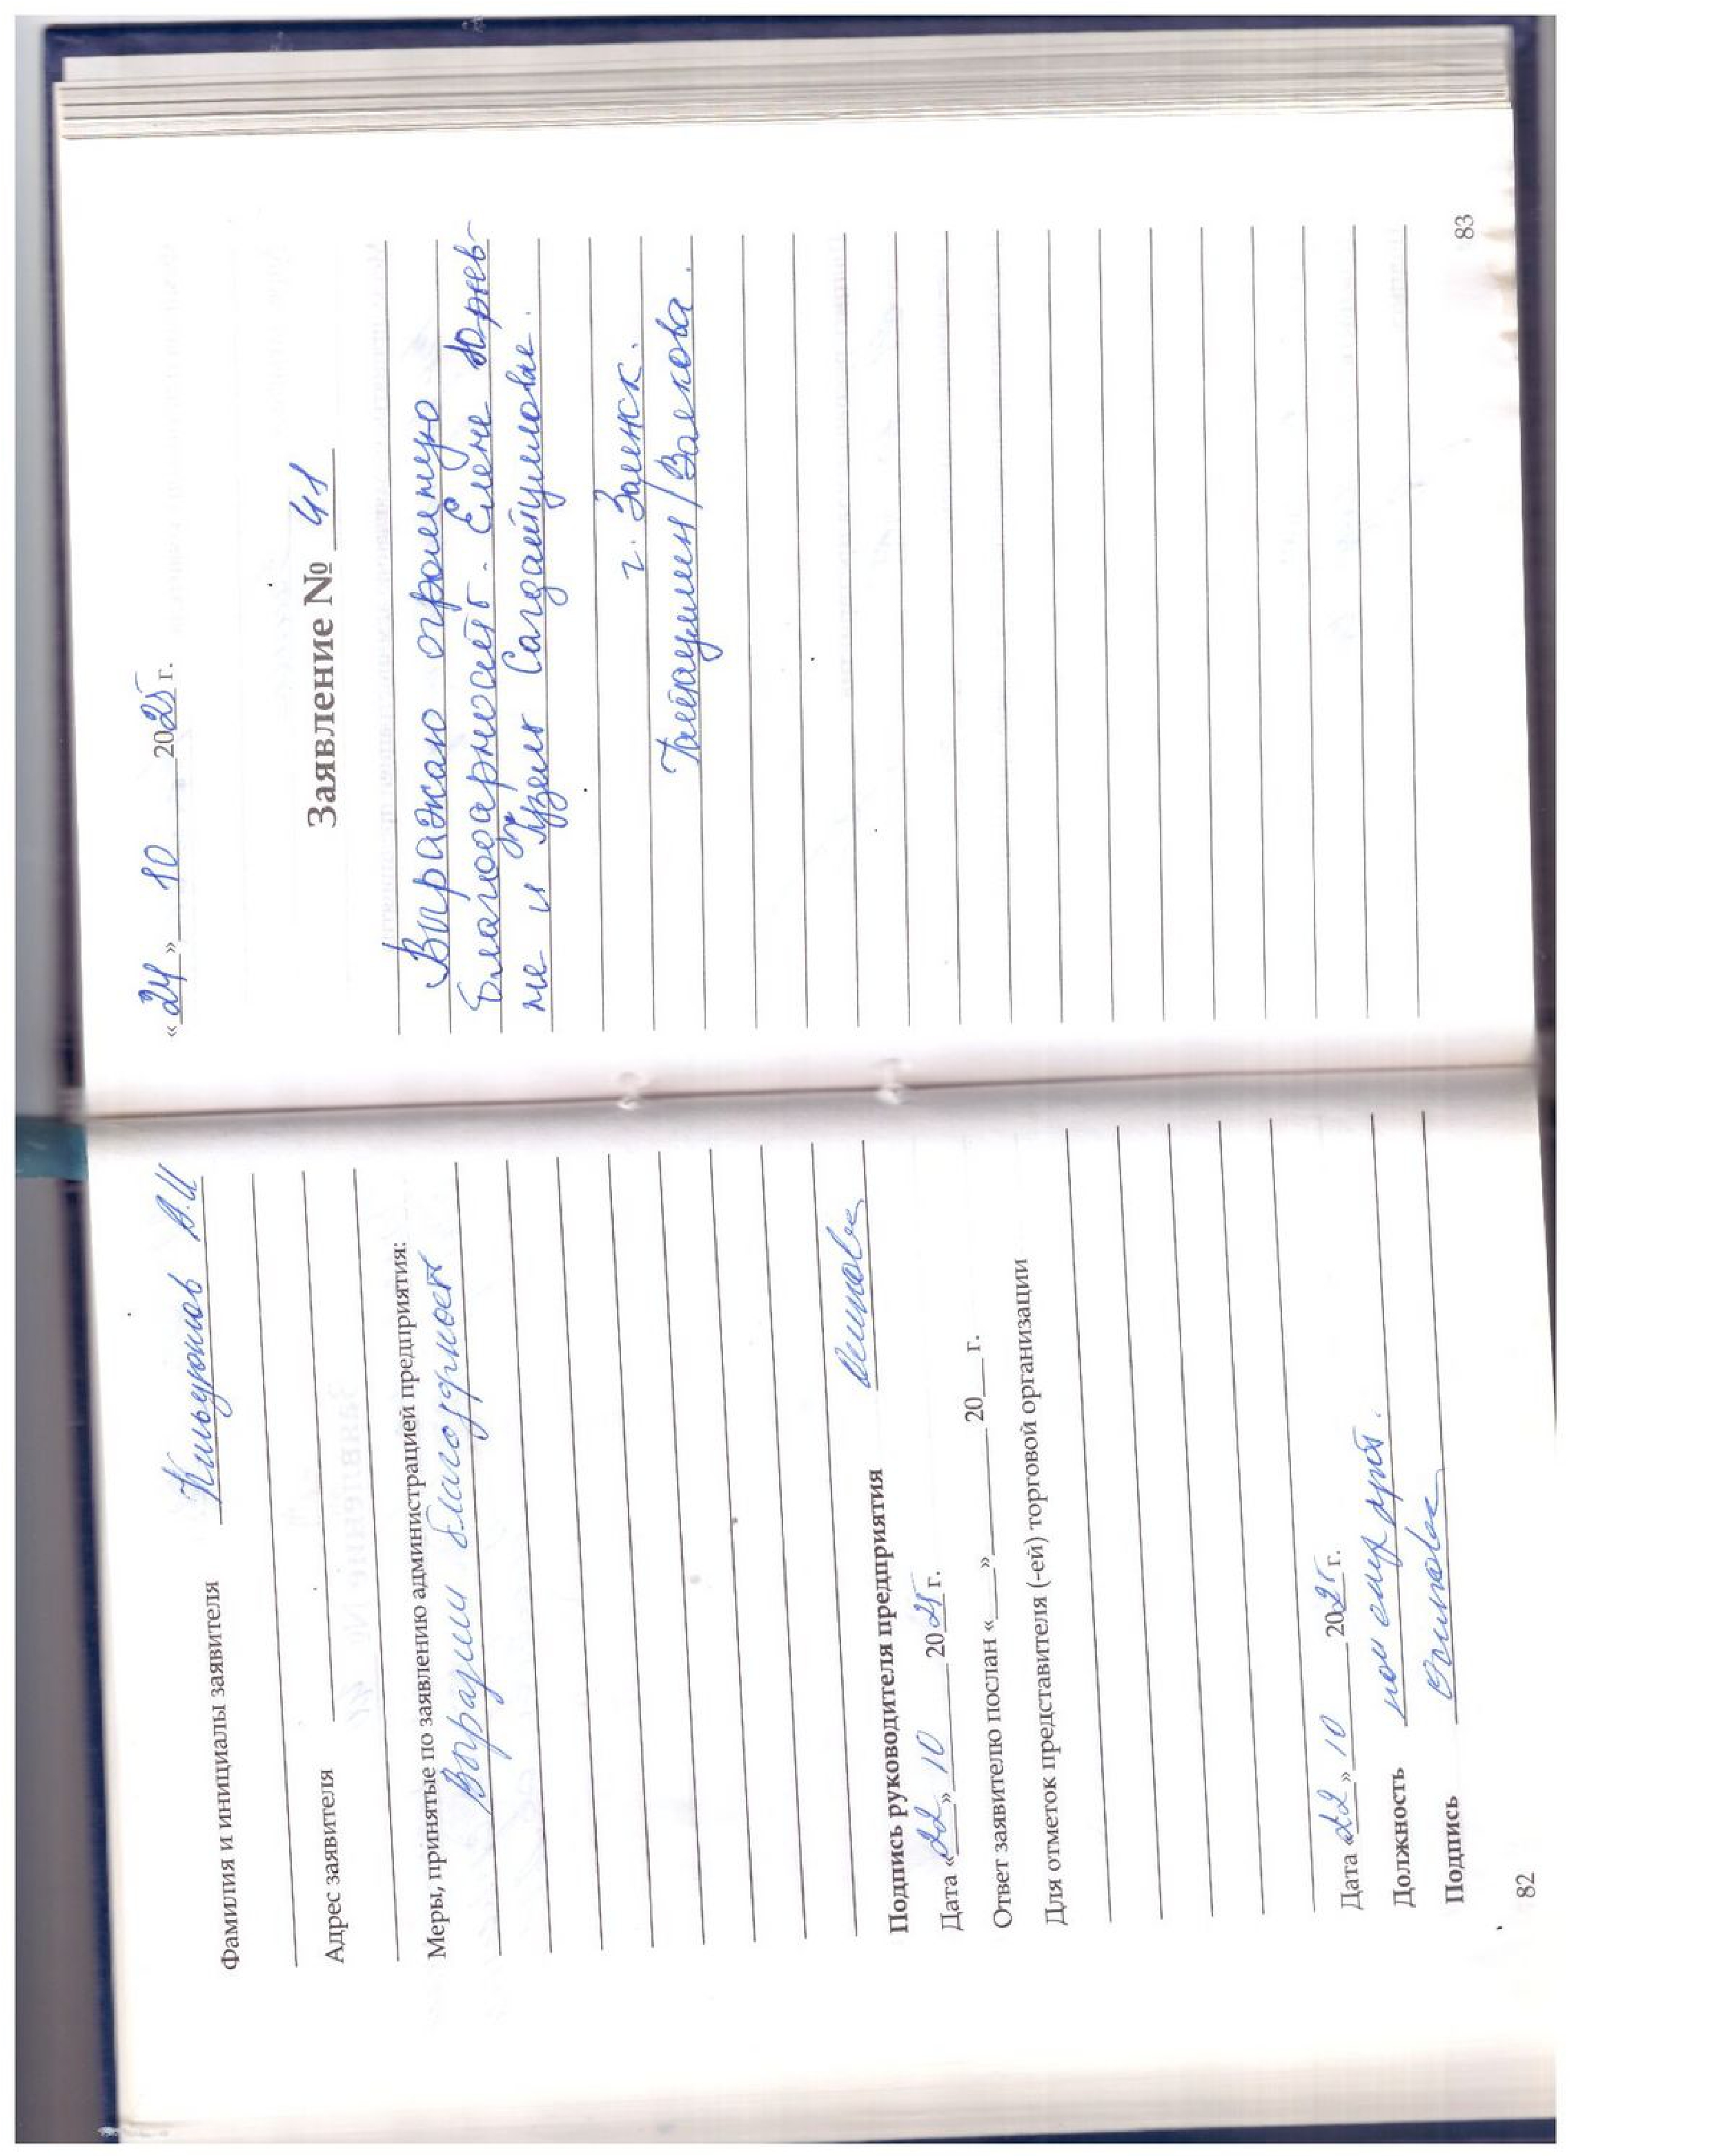 Фамилия и инициалы заявителя Кильдюшов В.И
Адрес заявителя
Меры, принятые по заявлению администрацией предприятия:
Выразили
Подпись руководителя предприятия
Дата «22» 10 2025 г.
Ответ заявителю послан «__» 20__ г.
Для отметок представителя (-ей) торговой организации
Дата «22» 10 2025 г.
Должность
Подпись
82
«24» 10 2025 г.
Заявление № 41
Выражаю огромную
благодарность. Елене Юрьев-
не и Гузель Сагдатулловне.
г. Заинск.
83